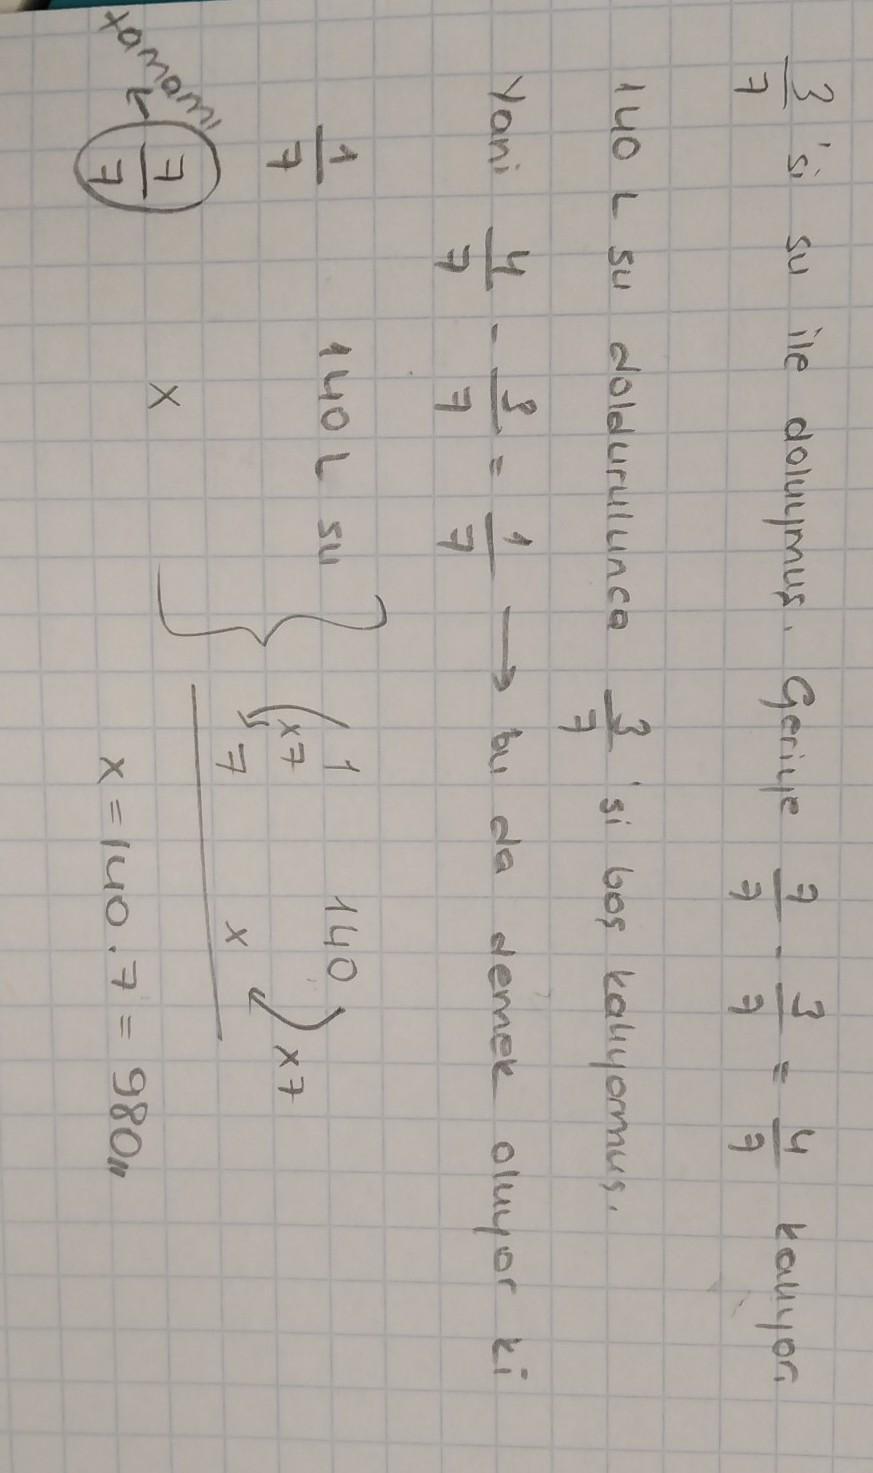 3/7 'si su ile doluymuş. Geriye 7/7 - 3/7 = 4/7 kalıyor.
140 L su doldurulunca 3/7 'si boş kalıyormuş.
Yani 4/7 - 3/7 = 1/7 → bu da demek oluyor ki
1/7 140 L su 1 140
x7 x7
tamamı 7/7 x 7 x
x = 140.7 = 980,,